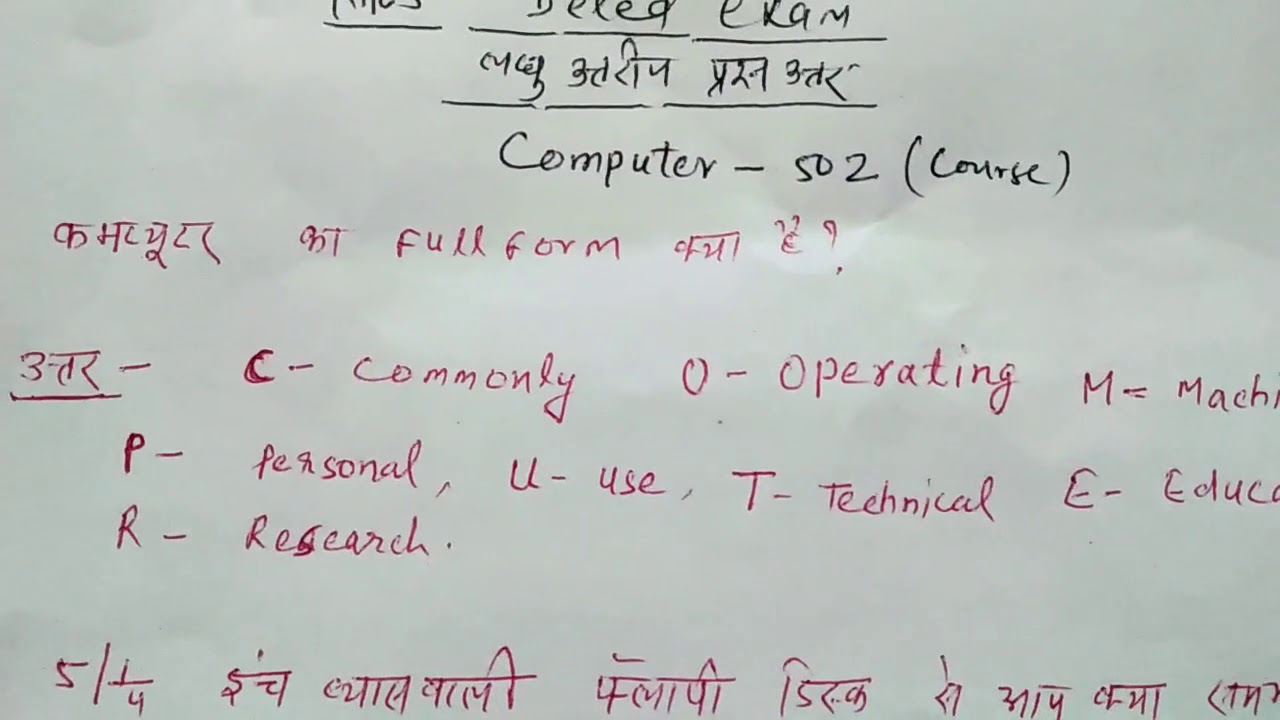 Deled Exam
लघु उतरीय प्रश्न उत्तर
Computer - 502 (Course)
कमप्यूटर का Full Form क्या है?
उत्तर - C - Commonly O - Operating M = Machi
P - Personal, U - use, T - Technical E - Educa
R - Research.
5/1/4 इंच व्यासवाली फ्लॉपी डिस्क से आप क्या समझ